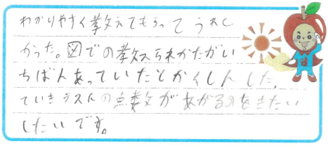 わかりやすく教えてもらって うれし
かった。図での教えられかたがい
ちばんあっていたとかくしんした。
ていきテストの点数があがるのをきたい
したいです。